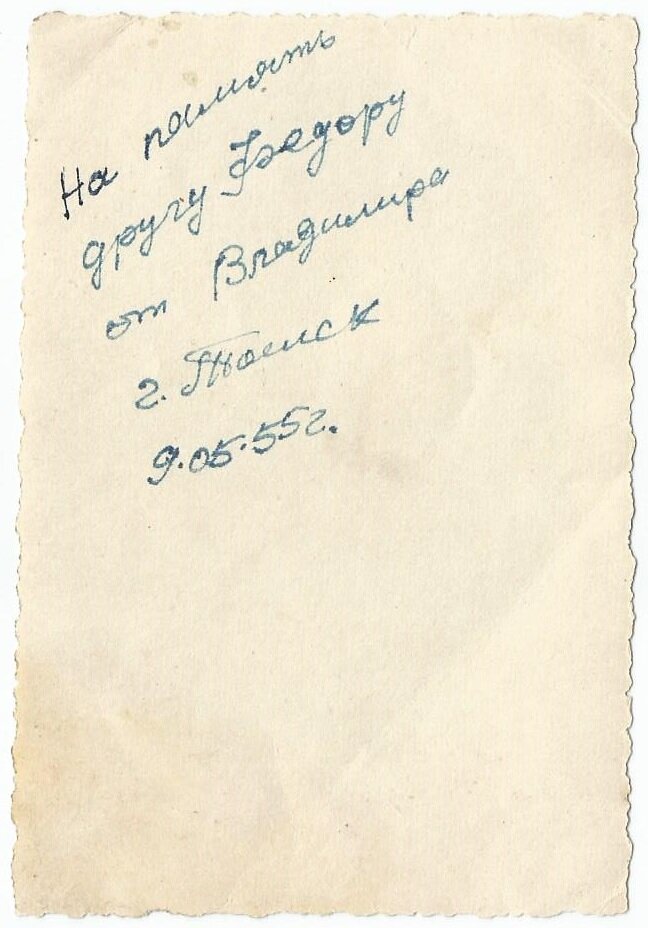 На память
другу Федору
от Владимира
г. Томск
9.05.55г.